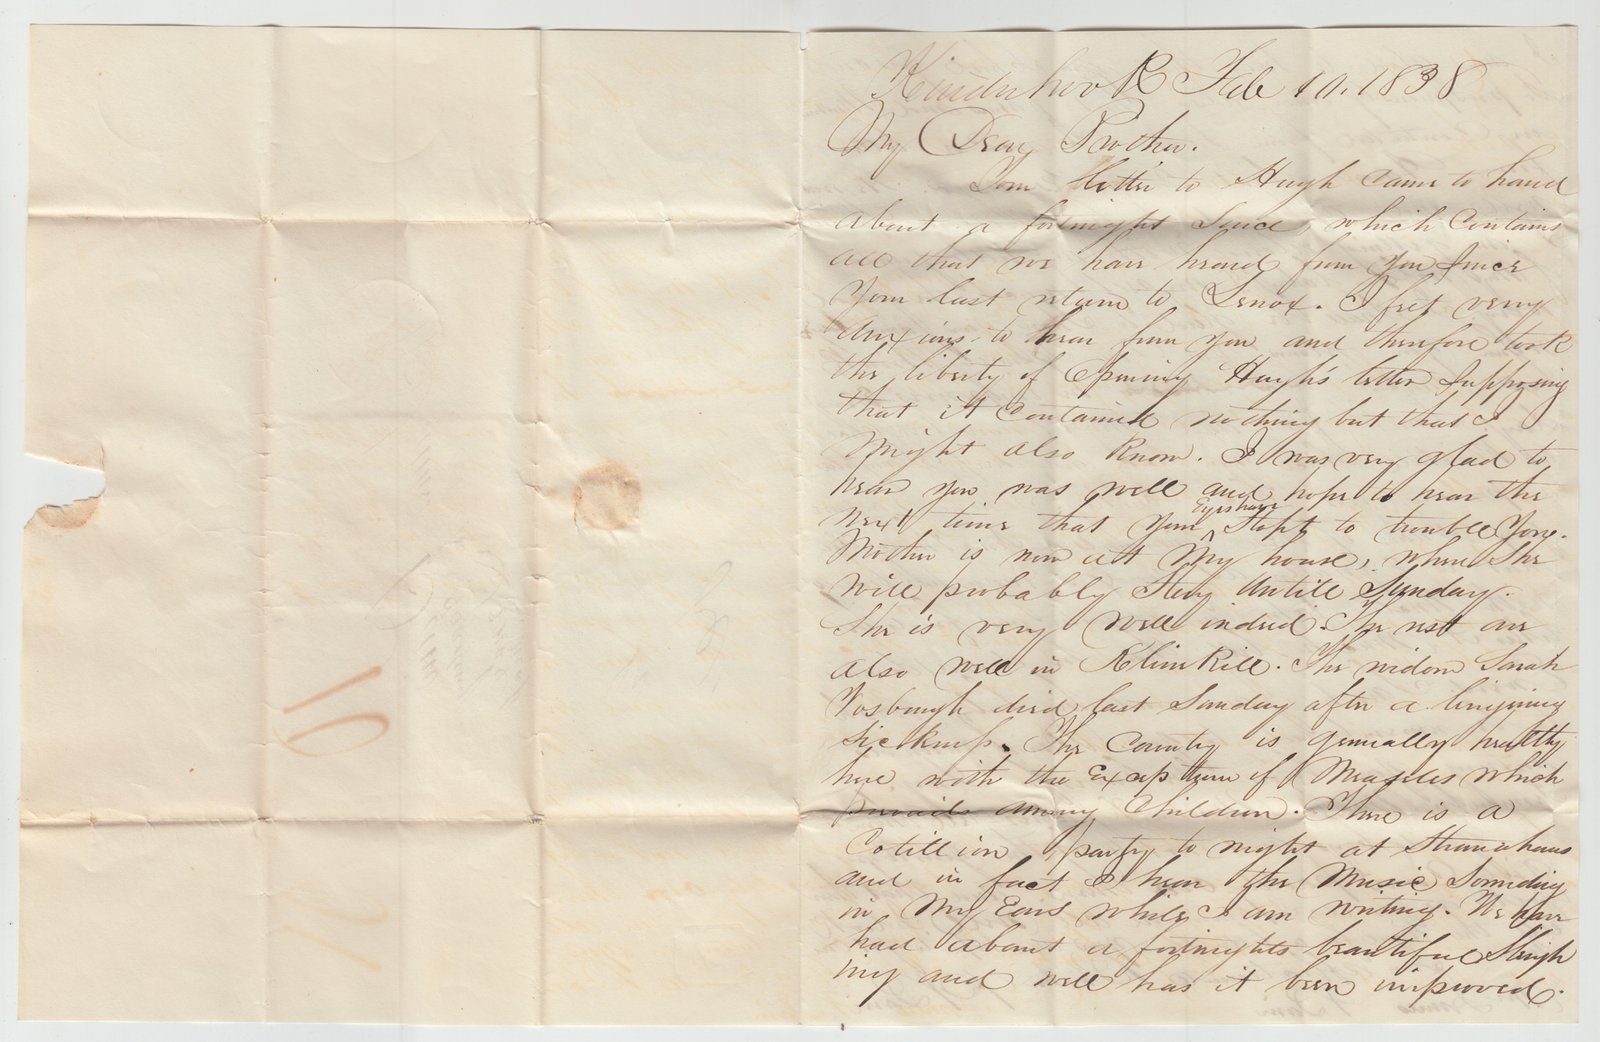 Kinderhook Feb 10. 1838
My Dear Brother.
Your letter to Hugh Came to hand
about a fortnight Since, which Contains
all that we have heard from You Since
Your last return to Lenox. I feel very
Anxious to hear from You and therefore took
the liberty of Opening Hugh's letter Supposing
that it Contained nothing but that I
Might also Know. I was very glad to
hear you was well and hope to hear the
next time that Your ^ Eyes have Stopt to trouble You.
Mother is now at My house, where She
will probably Stay Untill Sunday.
She is very Well indeed. The rest are
also well in KlineKill. The widow Sarah
Vosburgh died last Sunday after a lingining
Sickness. The Country is generally healthy
here with the Exception of Measles which
prevails among Children. There is a
Cotillion party to night at Stranahans
and in fact I hear the Music Sounding
in My Ears while I am writing. We have
had about a fortnights beautiful Sleigh
ing and well has it been improved.
10